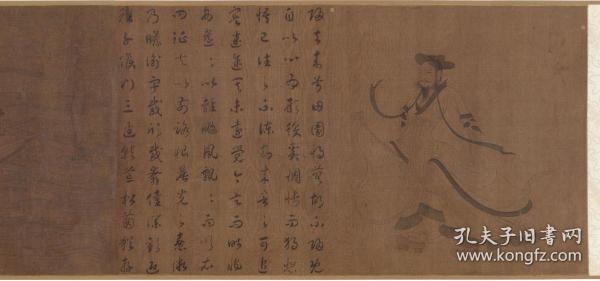 歸去來兮田園將蕪胡不歸既
自以心為形役奚惆悵而獨悲
悟已往之不諫知來者之可追
實迷途其未遠覺今是而昨非
舟遙遙以輕颺風飄飄而吹衣
問征夫以前路恨晨光之熹微
乃瞻衡宇載欣載奔僮僕歡迎
稚子候門三逕就荒松菊猶存
孔夫子旧书网
www.kongfz.com